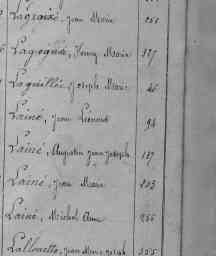 Lagroix, Jean Marie 151
Lagogüée, Henry Marie 177
Laguillée, Joseph Marie 46
Lainé, Jean Léonard 94
Lainé, Augustin Jean Joseph 187
Lainé, Jean Marie 203
Lainé, Michel Ame 255
Lallouette, Jean Marie Joseph 355